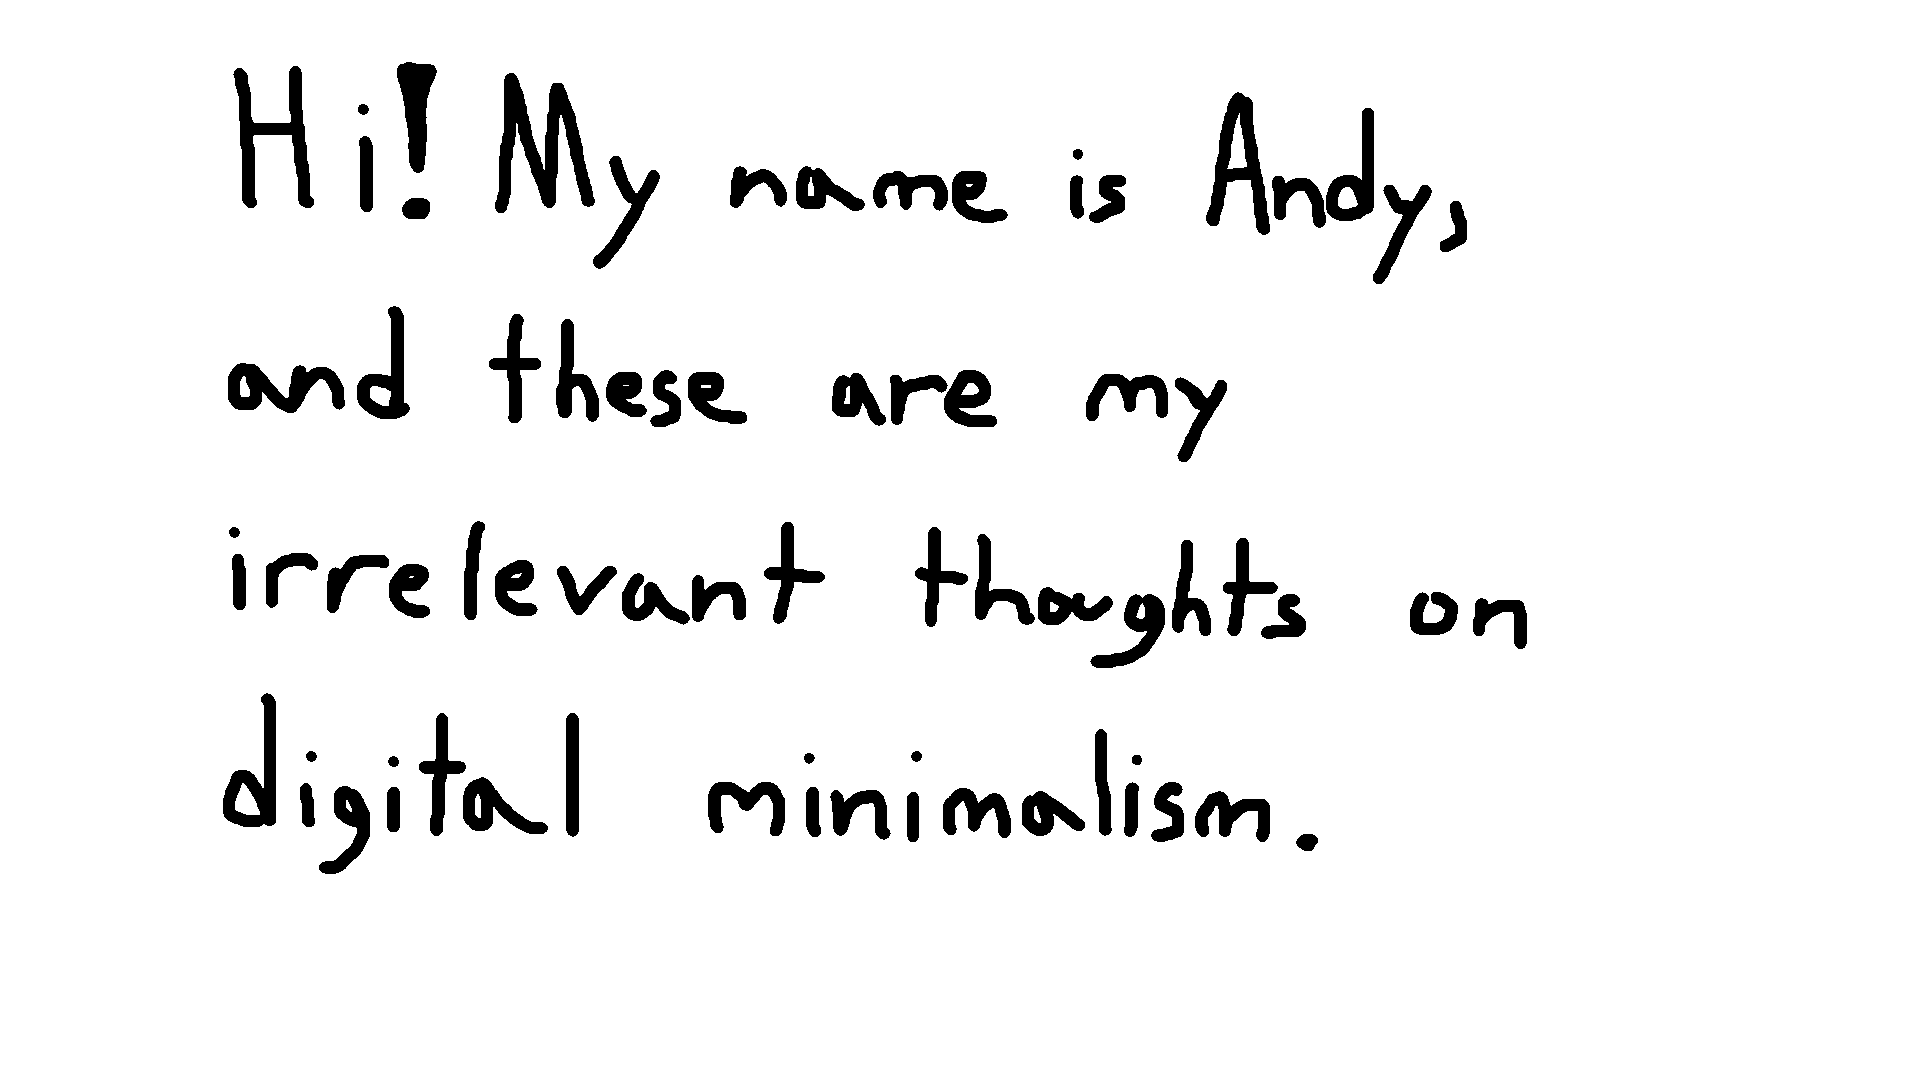 Hi! My name is Andy,
and these are my
irrelevant thoughts on
digital minimalism.